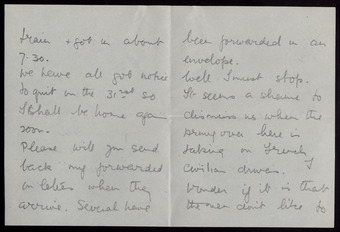 train + got in about
7.30.
We have all got notice
to quit on the 31st so
I shall be home again
soon.
Please will you send
back my forwarded
letters when they
arrive. Several have
been forwarded in an
envelope.
Well I must stop.
It seems a shame to
dismiss us when the
army over here is
taking on French
civilian drivers.
Wonder if it is that
the men don't like to